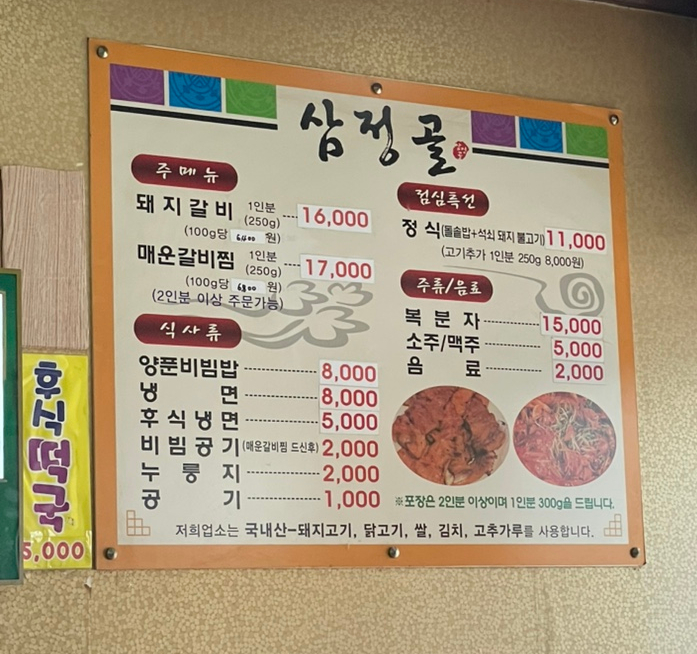 삼정골
주메뉴
돼지갈비 1인분 (250g) 16,000
(100g당 6,400 원)
매운갈비찜 1인분 (250g) 17,000
(100g당 6,800 원)
(2인분 이상 주문가능)
식사류
양푼비빔밥 8,000
냉면 8,000
후식냉면 5,000
비빔공기 (매운갈비찜 드신후) 2,000
누룽지 2,000
공기 1,000
점심특선
정식(돌솥밥+석쇠 돼지 불고기) 11,000
(고기추가 1인분 250g 8,000원)
주류/음료
복분자 15,000
소주/맥주 5,000
음료 2,000
※포장은 2인분 이상이며 1인분 300g을 드립니다.
저희업소는 국내산-돼지고기, 닭고기, 쌀, 김치, 고추가루를 사용합니다.
후식떡국
5,000